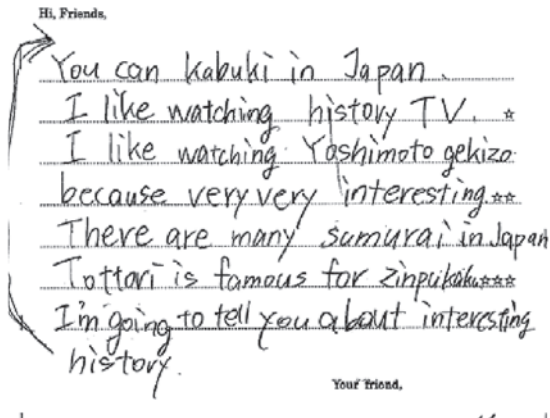 Hi, Friends,
You can kabuki in Japan.
I like watching history TV. ☆
I like watching Yoshimoto gekizo
because very very interesting. ☆☆
There are many sumurai in Japan
Tottori is famous for zinpukaku ☆☆☆
I'm going to tell you about interesting
history.
Your friend,